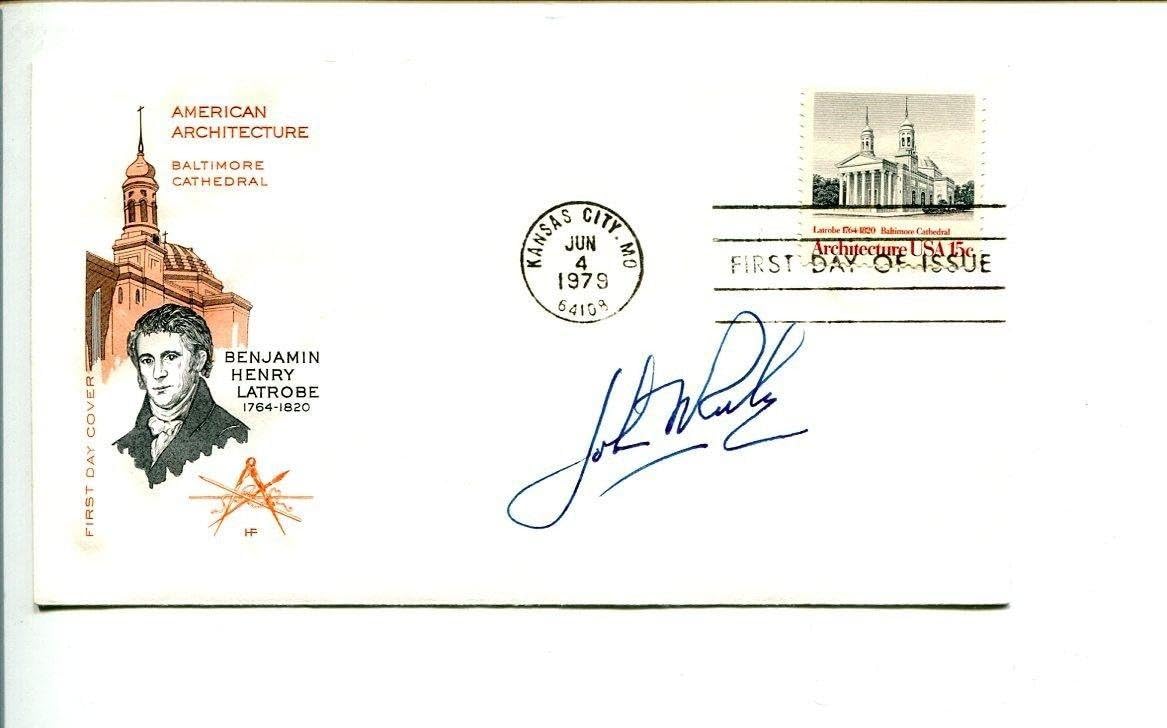 AMERICAN
ARCHITECTURE
BALTIMORE
CATHEDRAL
BENJAMIN
HENRY
LATROBE
1764-1820
FIRST DAY COVER
HF
KANSAS CITY, MO
JUN
4
1979
64108
Latrobe 1764-1820 Baltimore Cathedral
Architecture USA 15c
FIRST DAY OF ISSUE
John